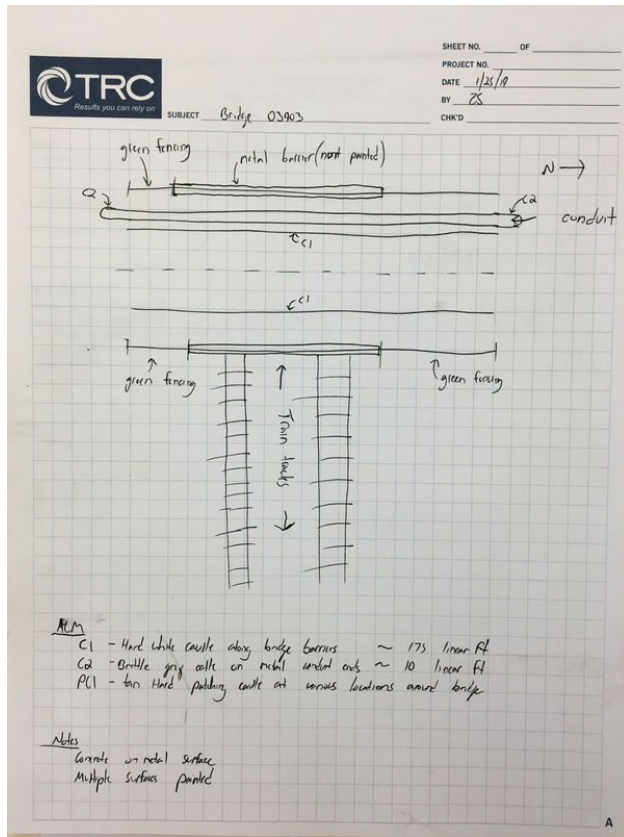 SHEET NO. OF
PROJECT NO.
TRC
Results you can rely on
DATE 1/25/19
BY ZS
SUBJECT Bridge 03903
CHK'D
green fencing
metal barrier (not painted)
N
C2
C2
conduit
C1
C1
green fencing
green fencing
Train tracks
ACM
C1 - Hard white caulk along bridge barriers ~ 175 linear ft
C2 - Brittle grey caulk on metal conduit ends ~ 10 linear ft
PC1 - tan Hard patching caulk at various locations around bridge
Notes
Concrete on metal surface
Multiple surfaces painted
A